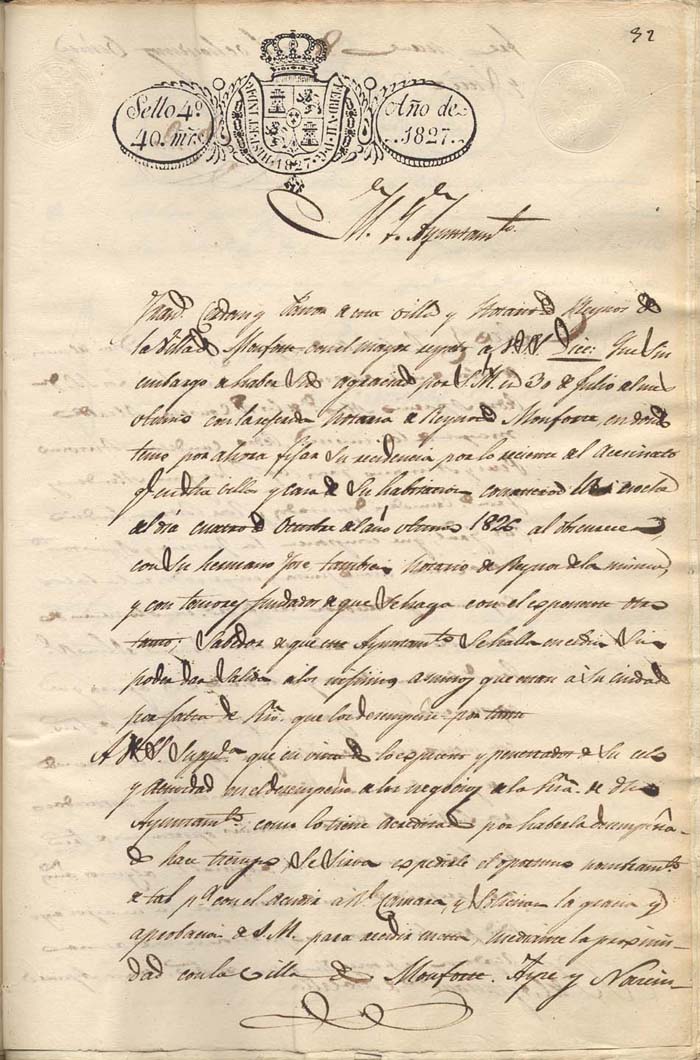 32
Sello 4º
40. mrs.
HISP. ET IND. R. 1827. FERD. VII. D. G.
Año de
1827.
M. Y. Ayuntamto.
vecino de esta villa y Notario de Reynos de
la Villa de Monforte con el mayor respeto a V.S. Dice: Que sin
embargo de haber sido agraciado por S.M. en 30 de Julio del año
ultimo con la referida Notaria de Reynos de Monforte, en donde
teme por ahora fijar su residencia por lo reciente del Asesinato
qe. en dha villa y casa de su habitacion cometieron
el dia cuatro de Octubre del año ultimo 1826 al obscurecer
con su hermano José tambien Notario de Reynos de la misma,
y con temores fundados de que se haga con el exponente otro
tanto; Sabedor de que ese Ayuntamto. se halla en el dia sin
poder dar salida a los infinitos asuntos que estan a su cuidado
por falta de Srio. que los desempeñe por tanto
A V.S. Suplca. que en vista de lo expuesto y penetrados de su celo
y actividad en el desempeño de los negocios de la Sria. de dho
Ayuntamto. como lo tiene acreditado por haberla desempeña-
do hace tiempo, se sirva expedirle el oportuno nombramto.
de tal pa. con el acudir a la Rl. Camara, y solicitar la gracia y
aprobacion de S.M. para residir en esta, mediante la proximi-
dad con la villa de Monforte, Aspe y Novelda